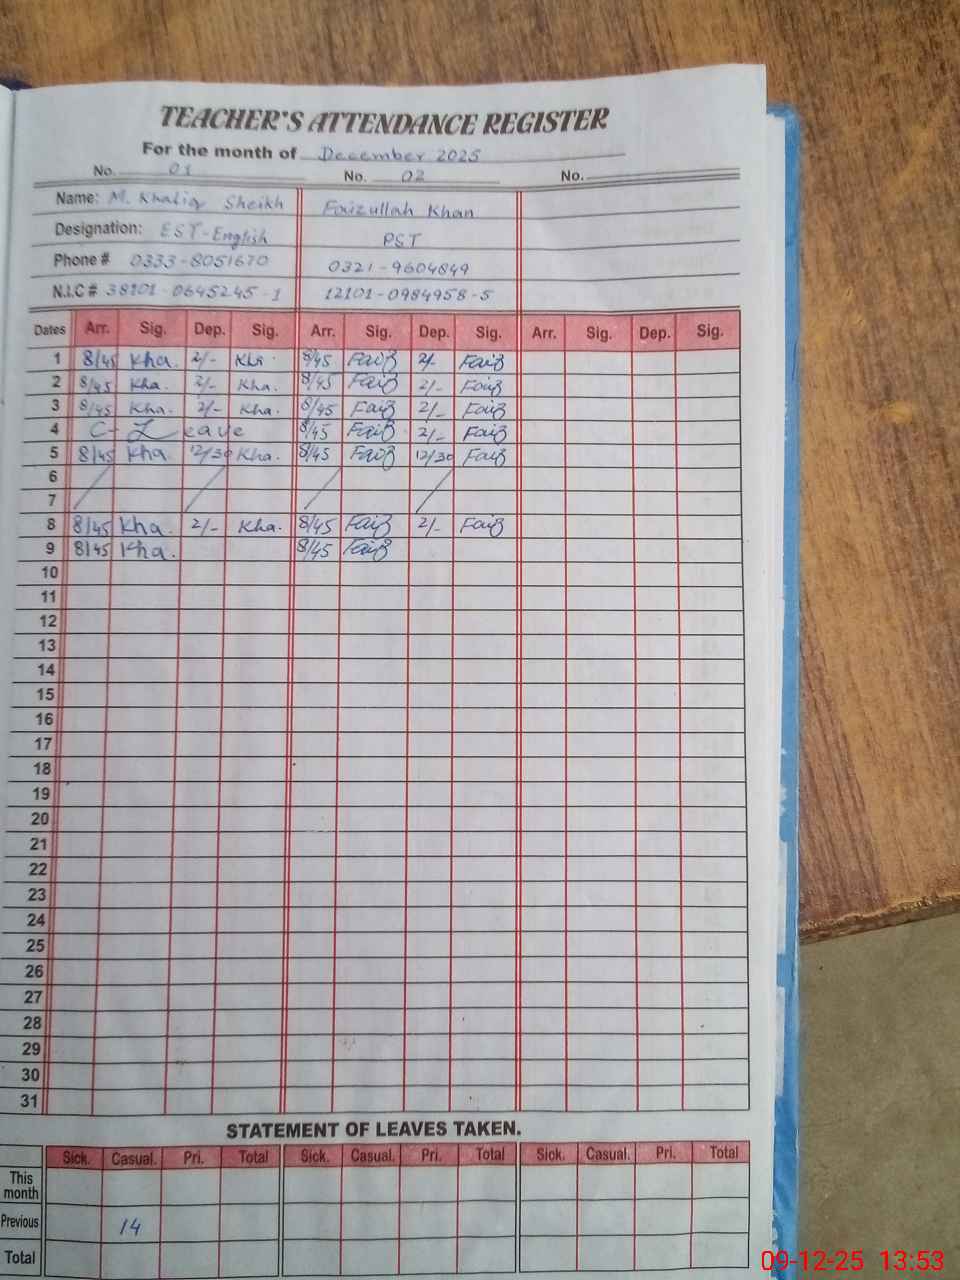 TEACHER'S ATTENDANCE REGISTER
For the month of December 2025
No. 01 No. 02 No.
Name: M. Khaliq Sheikh Faizullah Khan
Designation: EST-English PST
Phone # 0333-8051670 0321-9604849
N.I.C # 38101-0645245-1 12101-0984958-5
Dates Arr. Sig. Dep. Sig. Arr. Sig. Dep. Sig. Arr. Sig. Dep. Sig.
1 8/45 Kha. 2/- Kha. 8/45 Faiz 2/- Faiz
2 8/45 Kha. 2/- Kha. 8/45 Faiz 2/- Faiz
3 8/45 Kha. 2/- Kha. 8/45 Faiz 2/- Faiz
4 C- Leave 8/45 Faiz 2/- Faiz
5 8/45 Kha. 12/30 Kha. 8/45 Faiz 12/30 Faiz
6
7
8 8/45 Kha. 2/- Kha. 8/45 Faiz 2/- Faiz
9 8/45 Kha. 8/45 Faiz
10
11
12
13
14
15
16
17
18
19
20
21
22
23
24
25
26
27
28
29
30
31
STATEMENT OF LEAVES TAKEN.
Sick. Casual. Pri. Total Sick. Casual. Pri. Total Sick. Casual. Pri. Total
This month
Previous 14
Total
09-12-25 13:53